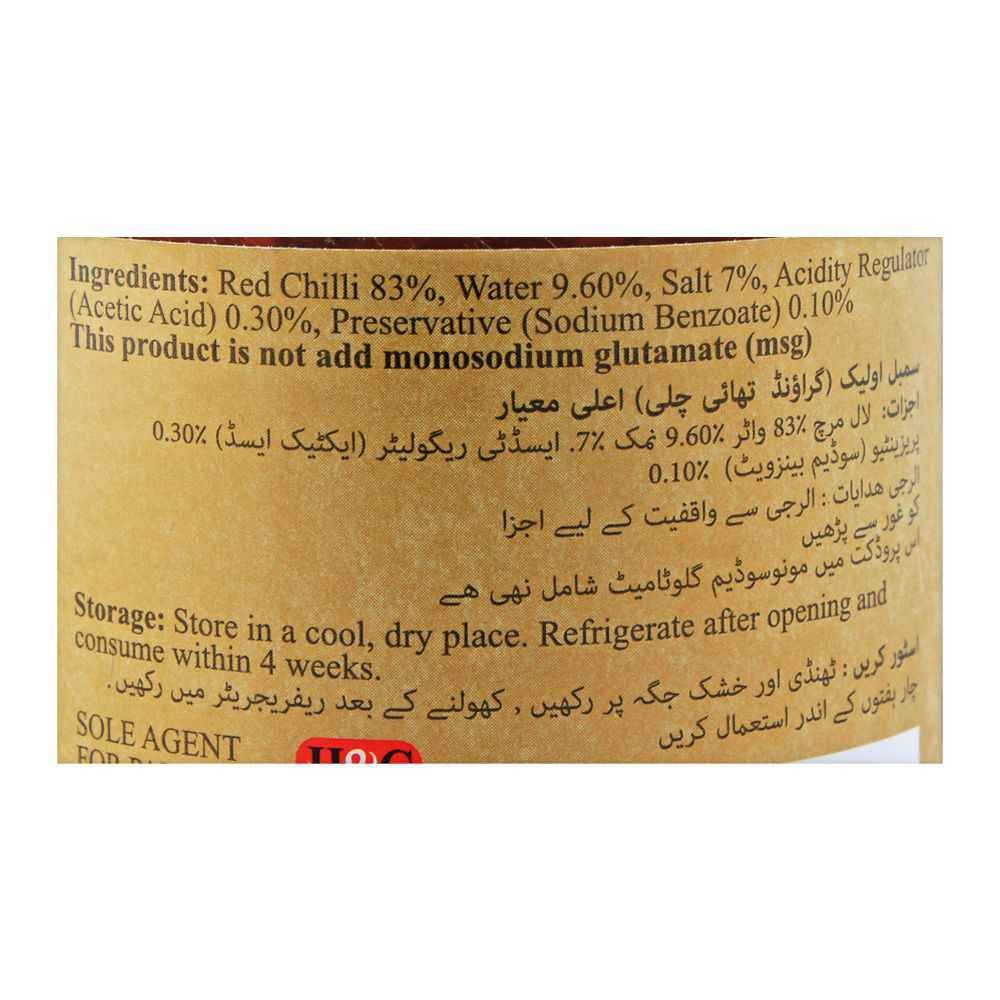 Ingredients: Red Chilli 83%, Water 9.60%, Salt 7%, Acidity Regulator
(Acetic Acid) 0.30%, Preservative (Sodium Benzoate) 0.10%
This product is not add monosodium glutamate (msg)
سمبل اولیک (گراؤنڈ تھائی چلی) اعلی معیار
اجزات: لال مرچ 83٪ واٹر 9.60٪ نمک 7٪. ایسڈٹی ریگولیٹر (ایکٹیک ایسڈ) 0.30٪
پریزینٹیو (سوڈیم بینزویٹ) 0.10٪
الرجی ھدایات : الرجی سے واقفیت کے لیے اجزا
کو غور سے پڑھیں
اس پروڈکٹ میں مونوسوڈیم گلوٹامیٹ شامل نھی ھے
Storage: Store in a cool, dry place. Refrigerate after opening and
consume within 4 weeks.
اسٹور کریں : ٹھنڈی اور خشک جگہ پر رکھیں , کھولنے کے بعد ریفریجریٹر میں رکھیں.
چار ہفتوں کے اندر استعمال کریں
SOLE AGENT
H&C